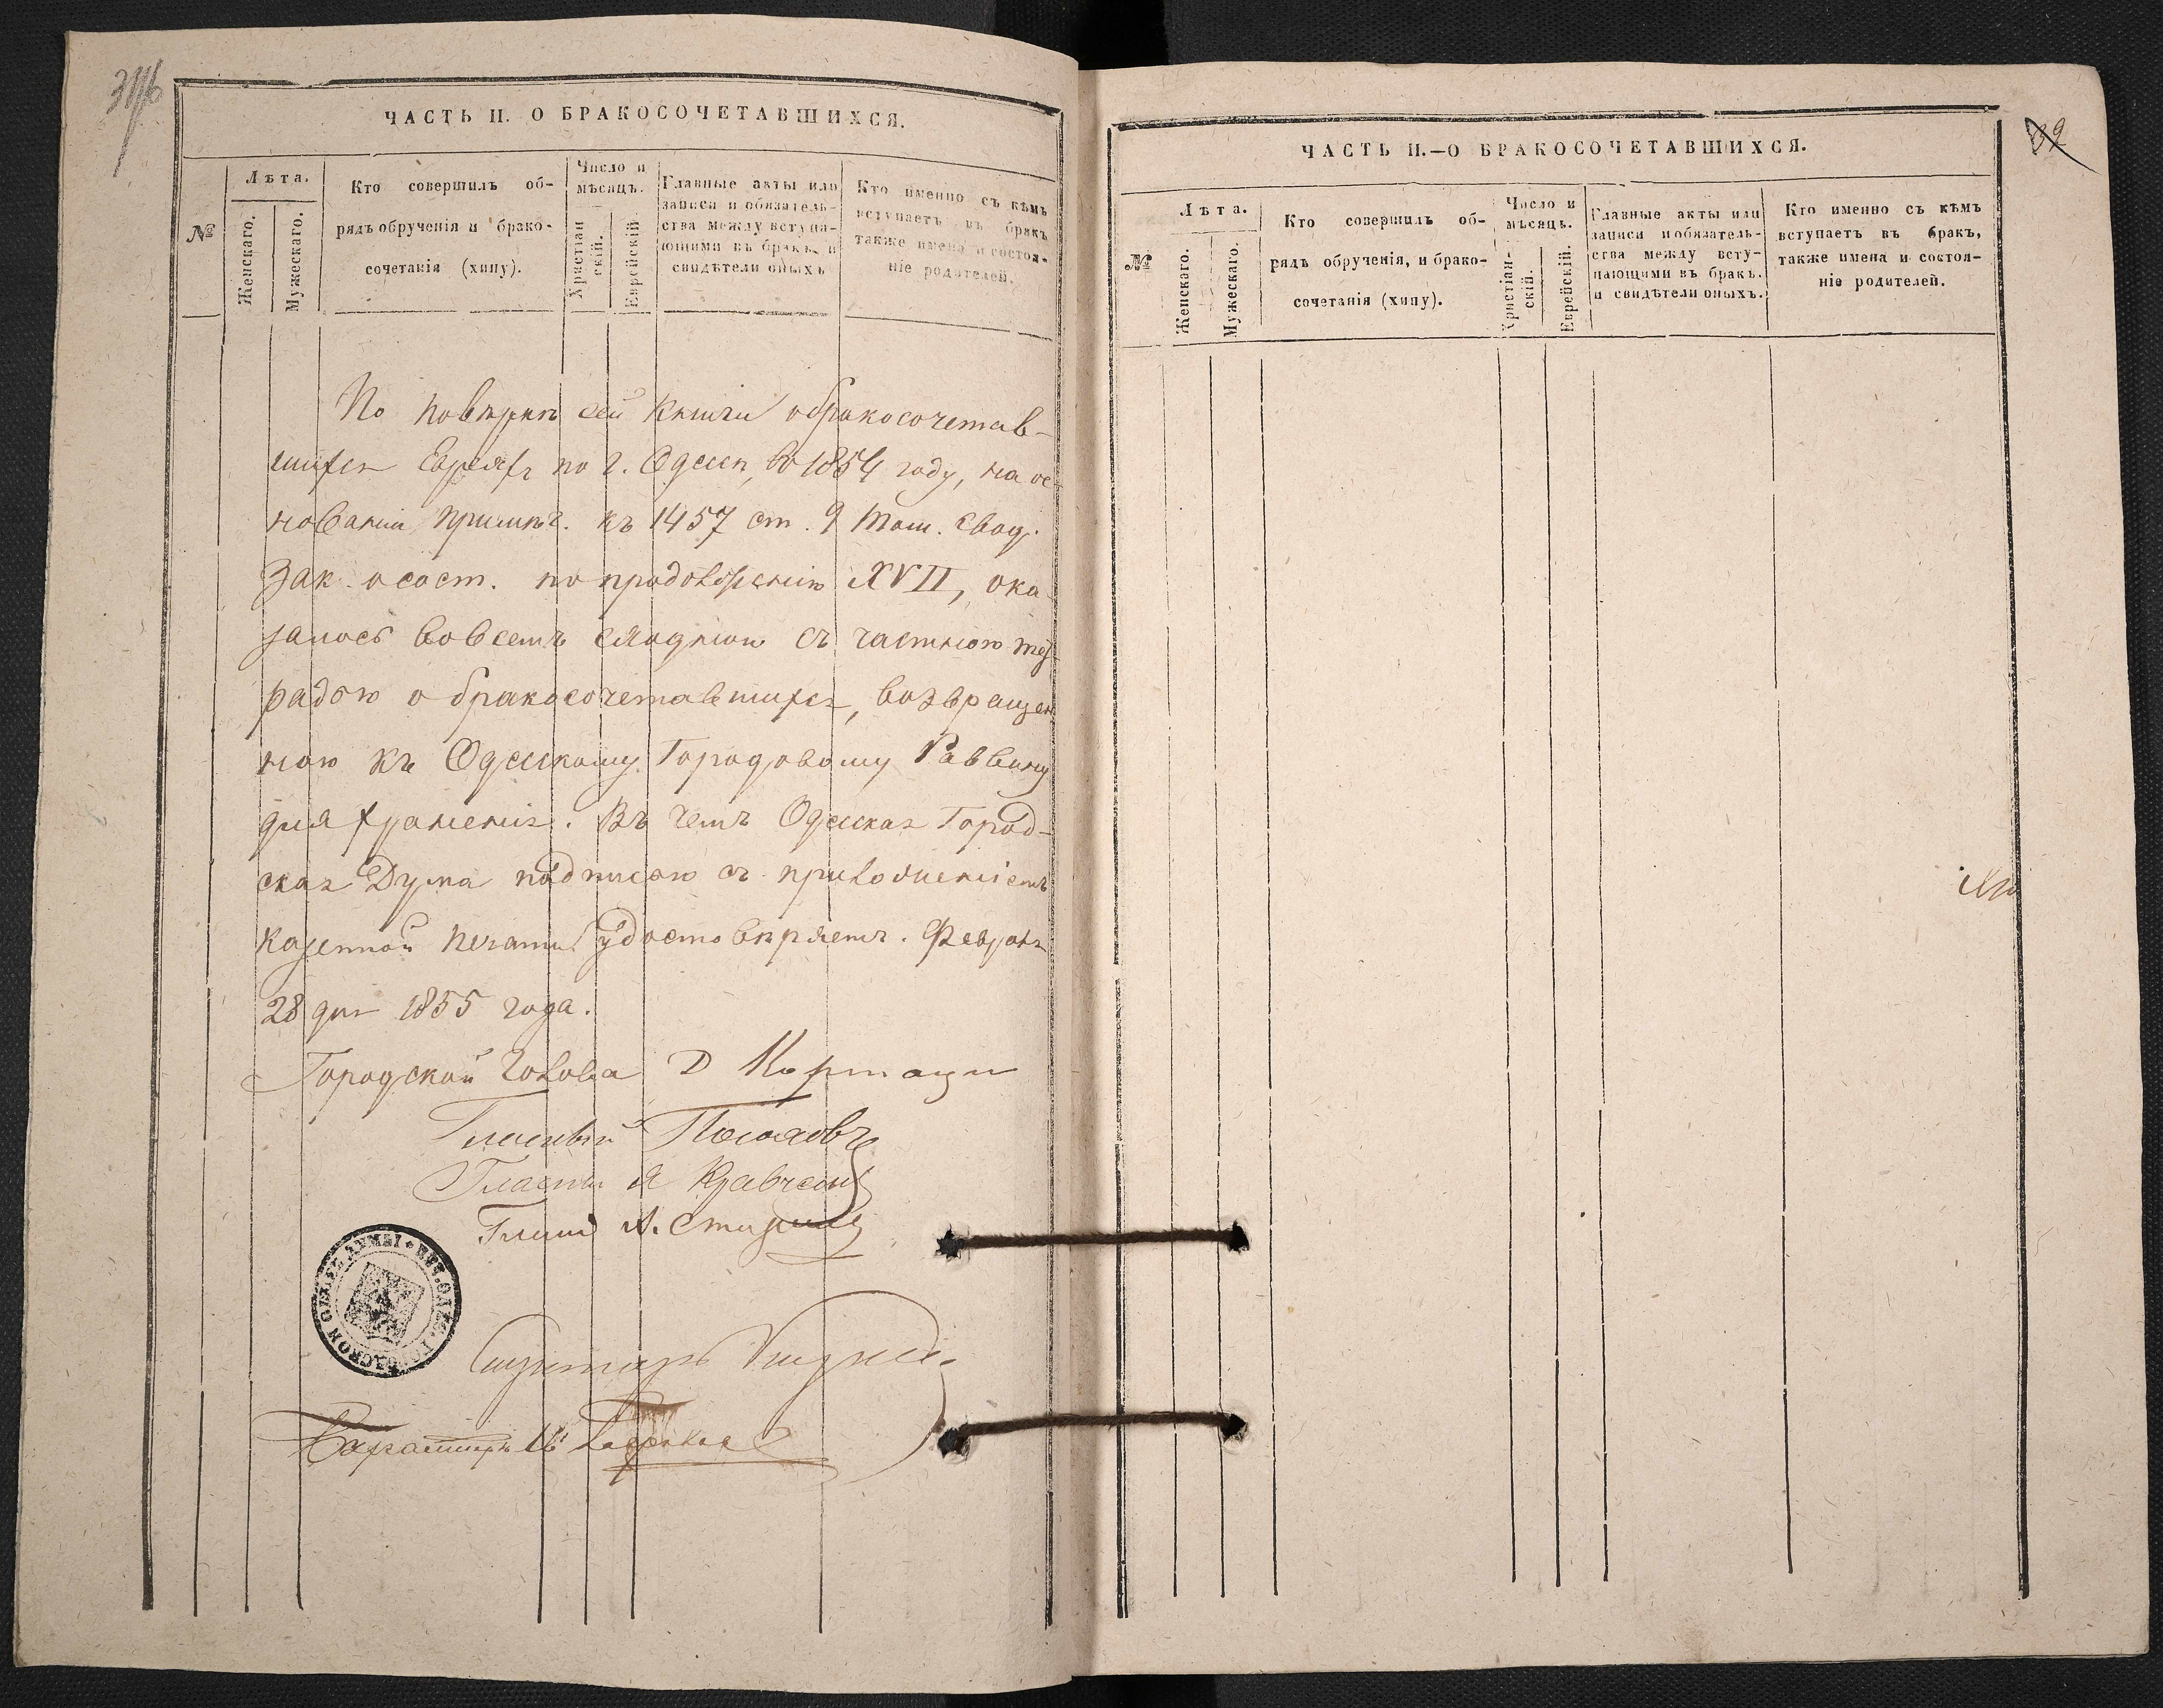 ЧАСТЬ II. О БРАКОСОЧЕТАВШИХСЯ.
№
Лѣта.
Женскаго.
Мужескаго.
Кто совершилъ об-
рядъ обрученія и брако-
сочетанія (хипу).
Число и
мѣсяцъ.
Христіан
скій.
Еврейскій
Главные акты или
записи и обязатель-
ства между вступа-
ющими въ бракъ и
свидѣтели оныхъ
Кто именно съ кѣмъ
вступаетъ въ бракъ
также имена и состоя-
ніе родителей.
По повѣркѣ сей книги о бракосочетав-
шихся Евреяхъ по г. Одессѣ, въ 1854 году, на ос-
нованіи примѣч. къ 1457 ст. 9 Том. Свод.
Зак. о сост. по продолженію XVII, ока-
залось вовсемъ сходною съ частною тет-
радью о бракосочетавшихся, возвращен
ною къ Одесскому Городовому Раввину
для храненія. Въ чемъ Одесская Город-
ская Дума надписью съ приложеніемъ
казенной печати удостовѣряетъ. Февраля
28 дня 1855 года.
Городской Голова Д
Гласный
Гласный Я Кравченко
А.
Секретарь
ЧАСТЬ II.—О БРАКОСОЧЕТАВШИХСЯ.
39
№
Лѣта.
Женскаго.
Мужескаго.
Кто совершилъ об-
рядъ обрученія, и брако-
сочетанія (хипу).
Число и
мѣсяцъ.
Христіан-
скій.
Еврейскій.
Главные акты или
записи и обязатель-
ства между всту-
пающими въ бракъ.
и свидѣтели оныхъ.
Кто именно съ кѣмъ
вступаетъ въ бракъ,
также имена и состоя-
ніе родителей.